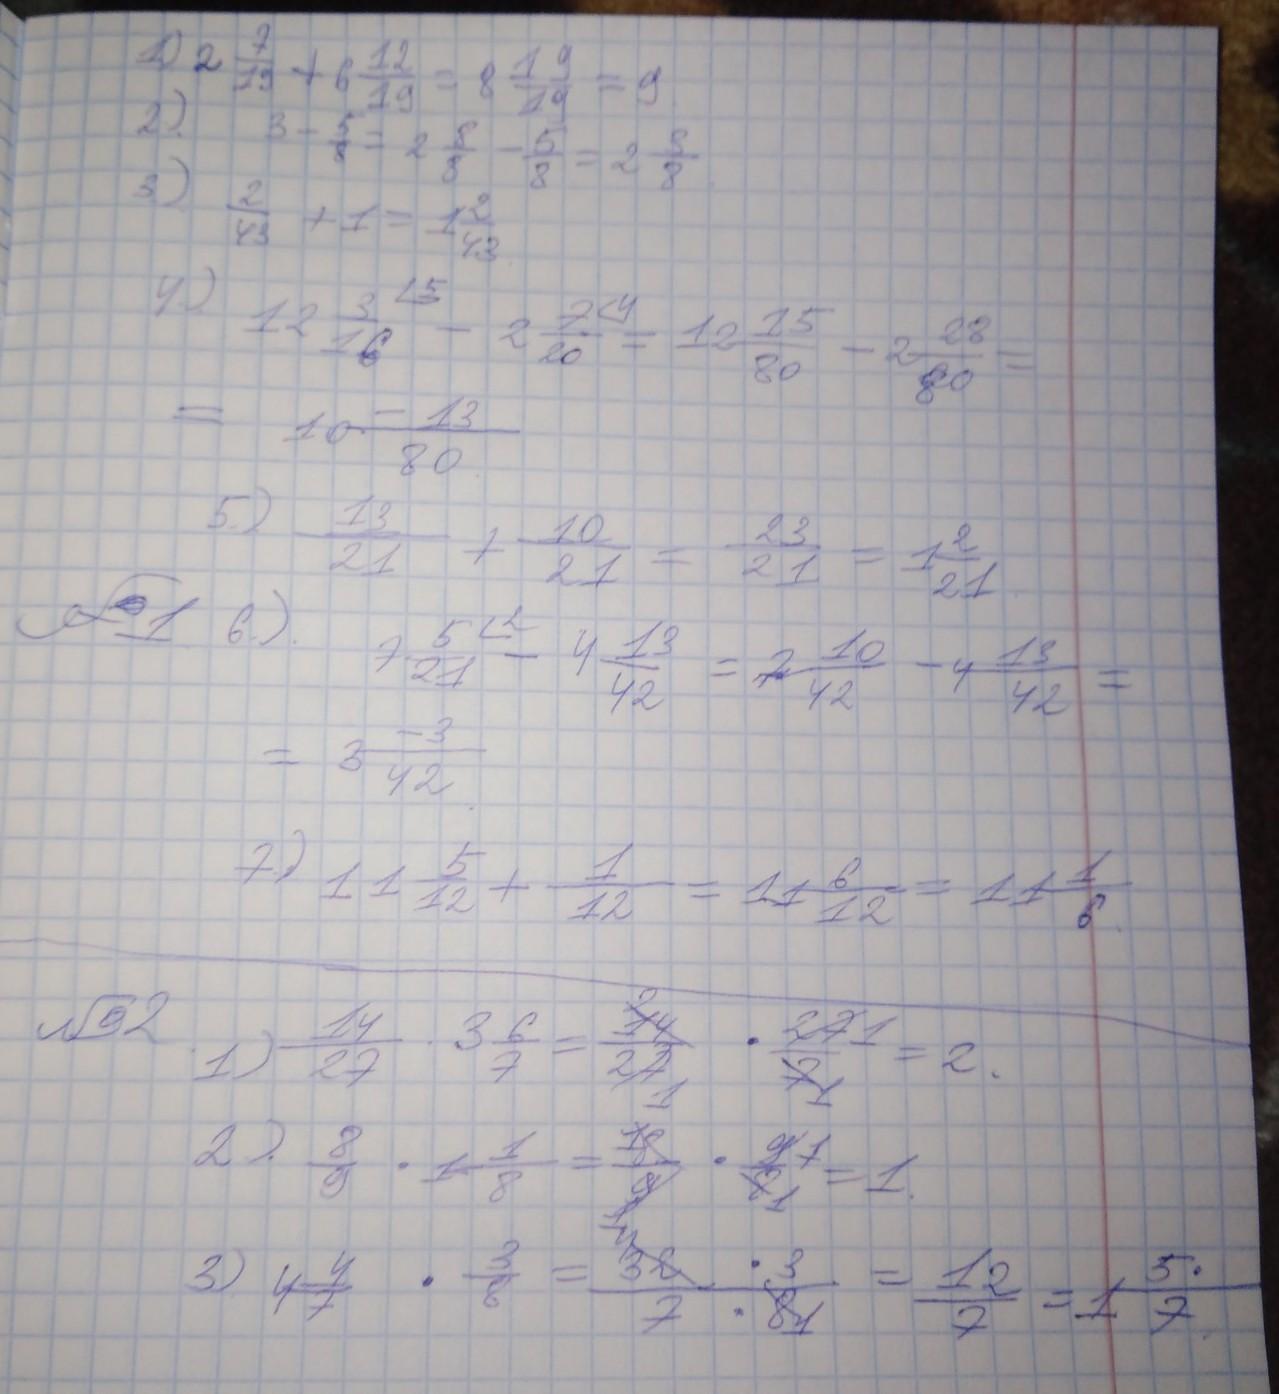 1) 2 7/19 + 6 12/19 = 8 19/19 = 9
2) 3 - 5/8 = 2 8/8 - 5/8 = 2 3/8
3) 2/43 + 1 = 1 2/43
4) 12 3/16 ∠5 - 2 7/20 ∠4 = 12 15/80 - 2 28/80 =
= 10 -13/80
5) 13/21 + 10/21 = 23/21 = 1 2/21
№1 6) 7 5/21 ∠2 - 4 13/42 = 7 10/42 - 4 13/42 =
= 3 -3/42
7) 11 5/12 + 1/12 = 11 6/12 = 11 1/6
№2
1) 14/27 · 3 6/7 = 14/27 · 27/7 = 2.
2) 8/9 · 1 1/8 = 8/9 · 9/8 = 1.
3) 4 4/7 · 3/8 = 32 · 3 / 7 · 8 = 12/7 = 1 5/7